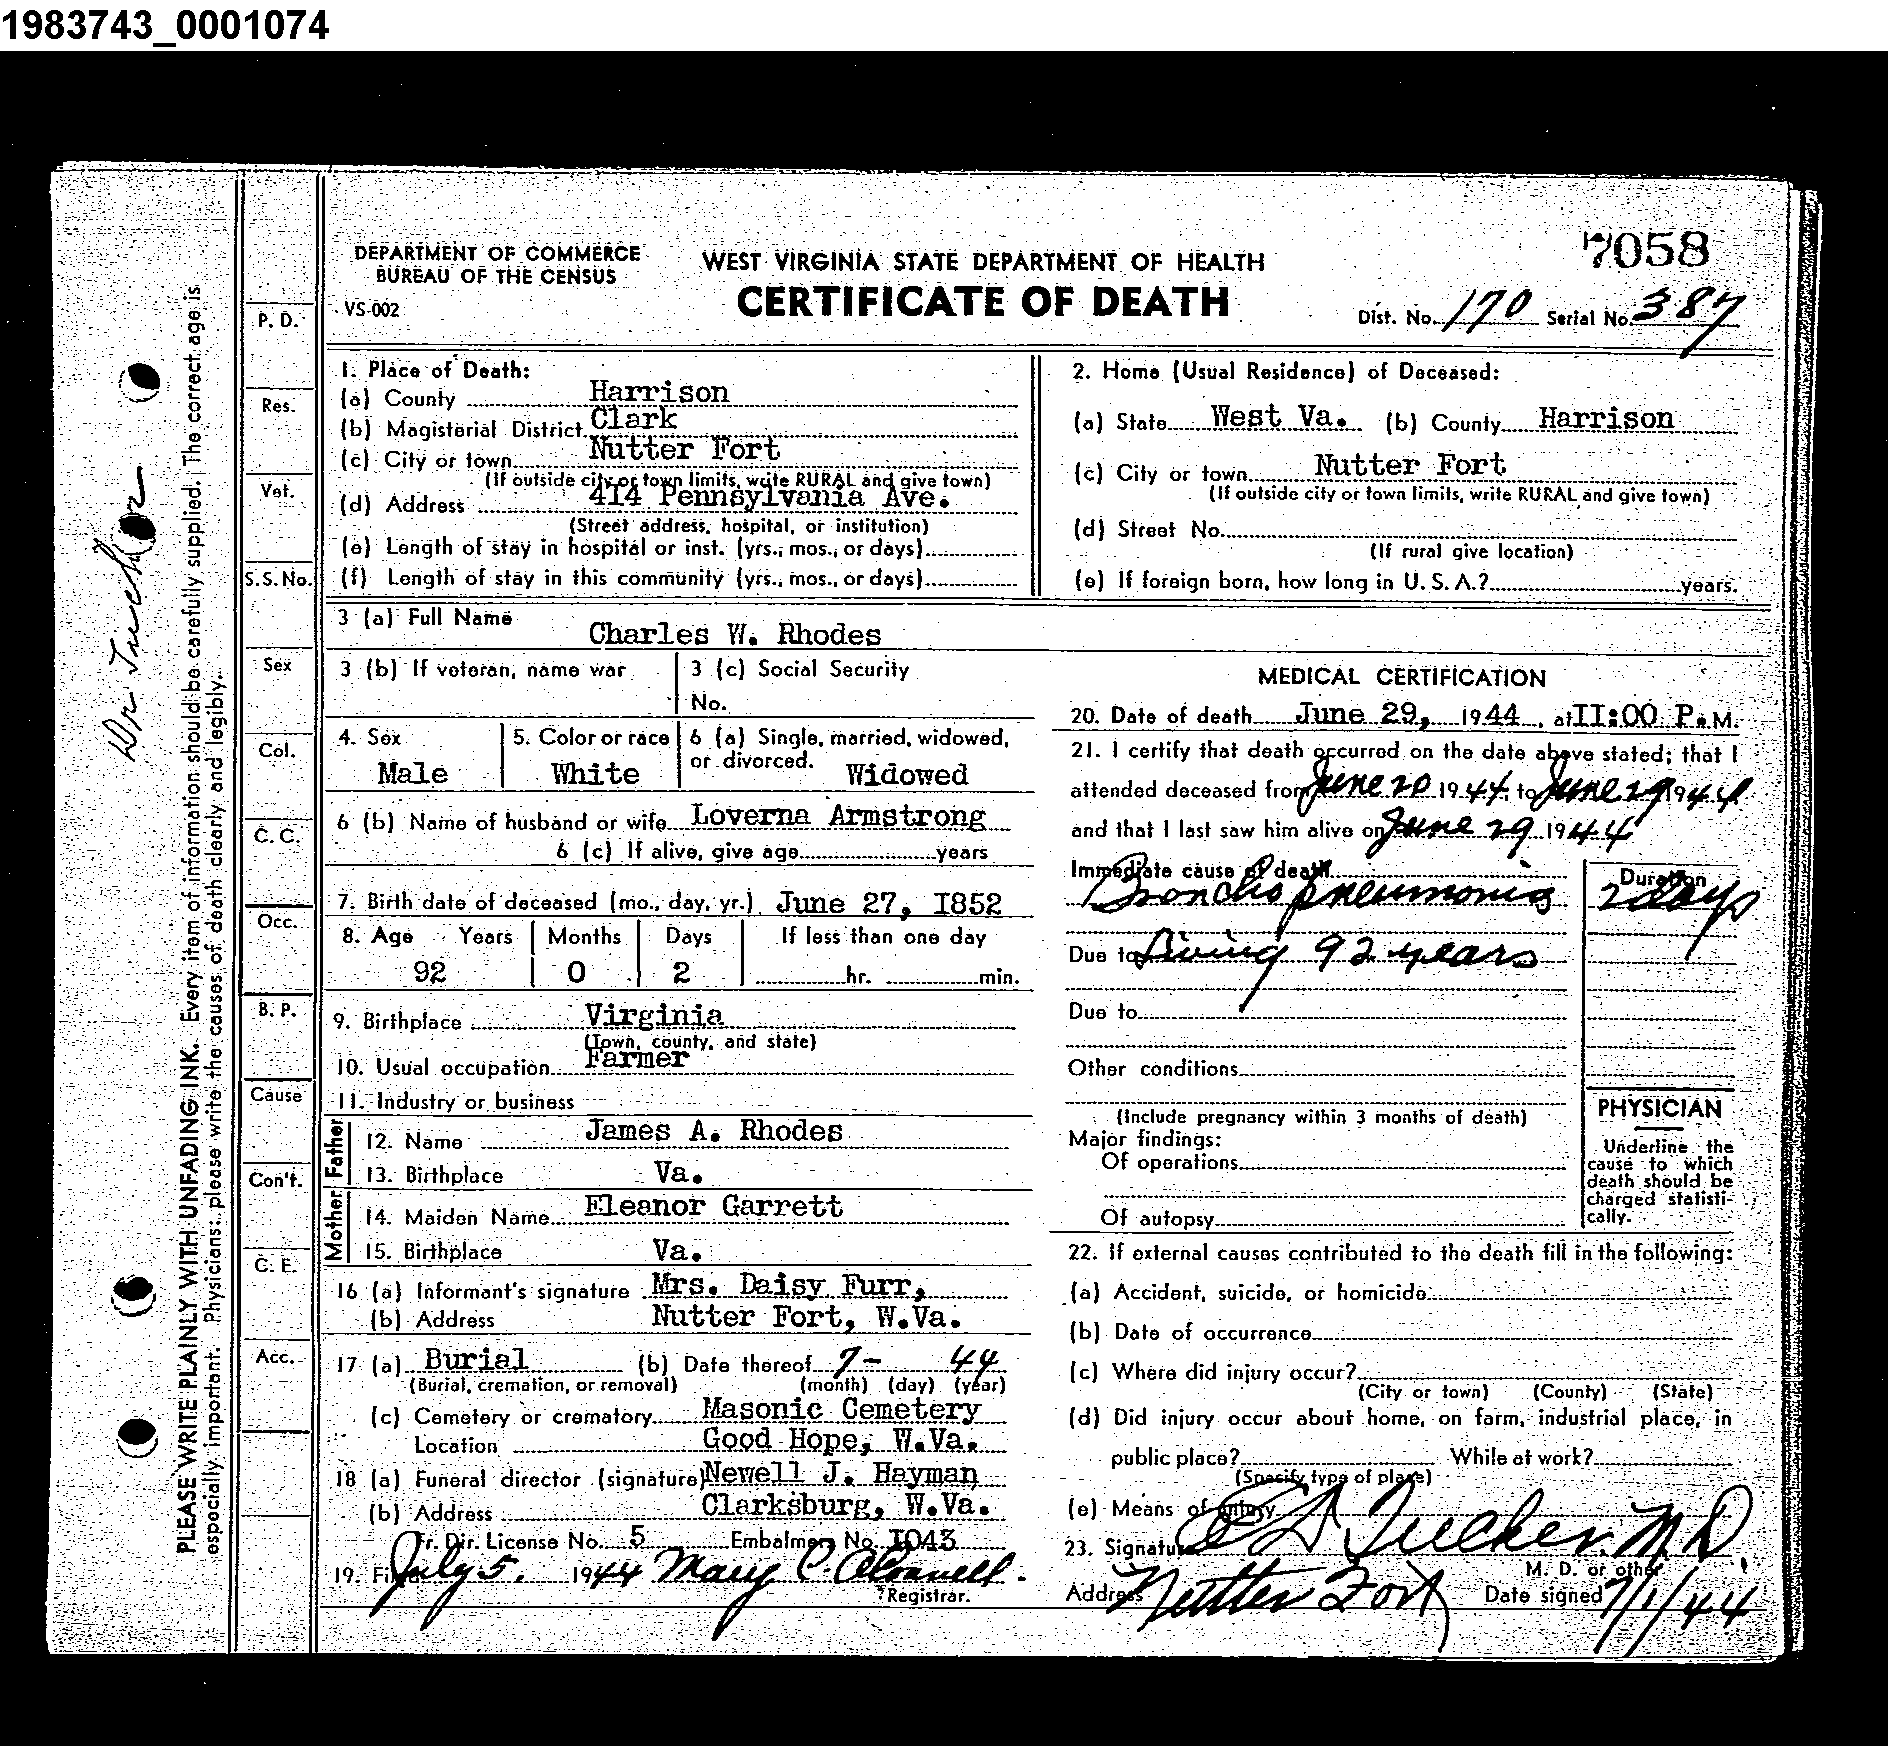 1983743_0001074
7058
DEPARTMENT OF COMMERCE
BUREAU OF THE CENSUS
VS-002
WEST VIRGINIA STATE DEPARTMENT OF HEALTH
CERTIFICATE OF DEATH
Dist. No. 170 Serial No. 387
1. Place of Death:
(a) County Harrison
(b) Magisterial District Clark
(c) City or town Nutter Fort
(If outside city or town limits, write RURAL and give town)
(d) Address 414 Pennsylvania Ave.
(Street address, hospital, or institution)
(e) Length of stay in hospital or inst. (yrs., mos., or days)
(f) Length of stay in this community (yrs., mos., or days)
2. Home (Usual Residence) of Deceased:
(a) State West Va. (b) County Harrison
(c) City or town Nutter Fort
(If outside city or town limits, write RURAL and give town)
(d) Street No.
(If rural give location)
(e) If foreign born, how long in U. S. A.? years.
3 (a) Full Name Charles W. Rhodes
3 (b) If veteran, name war
3 (c) Social Security
No.
4. Sex Male
5. Color or race White
6 (a) Single, married, widowed,
or divorced. Widowed
6 (b) Name of husband or wife Loverna Armstrong
6 (c) If alive, give age years
7. Birth date of deceased (mo., day, yr.) June 27, 1852
8. Age Years Months Days If less than one day
92 0 2 hr. min.
9. Birthplace Virginia
(Town, county, and state)
10. Usual occupation Farmer
11. Industry or business
Father
12. Name James A. Rhodes
13. Birthplace Va.
Mother
14. Maiden Name Eleanor Garrett
15. Birthplace Va.
16 (a) Informant's signature Mrs. Daisy Furr,
(b) Address Nutter Fort, W.Va.
17 (a) Burial (b) Date thereof 7- 44
(Burial, cremation, or removal) (month) (day) (year)
(c) Cemetery or crematory Masonic Cemetery
Location Good Hope, W.Va.
18 (a) Funeral director (signature) Newell J. Hayman
(b) Address Clarksburg, W.Va.
Fr. Dir. License No. 5 Embalmer No. 1043
19. Filed July 5. 1944 Mary C.
Registrar.
MEDICAL CERTIFICATION
20. Date of death June 29, 1944, at 11:00 P.M.
21. I certify that death occurred on the date above stated; that I
attended deceased from June 20 1944, to June 29 1944
and that I last saw him alive on June 29 1944
Immediate cause of death Duration
Broncho pneumonia 2 days
Due to Living 92 years
Due to
Other conditions
(Include pregnancy within 3 months of death)
Major findings:
Of operations
Of autopsy
PHYSICIAN
Underline the
cause to which
death should be
charged statisti-
cally.
22. If external causes contributed to the death fill in the following:
(a) Accident, suicide, or homicide
(b) Date of occurrence
(c) Where did injury occur?
(City or town) (County) (State)
(d) Did injury occur about home, on farm, industrial place, in
public place? While at work?
(Specify type of place)
(e) Means of injury
23. Signature Tucker. M.D.
M. D. or other
Address Nutter Fort Date signed 7/1/44
P. D.
Res.
Vet.
S.S. No.
Sex
Col.
C. C.
Occ.
B. P.
Cause
Con't.
C. E.
Acc.
Dr Tucker
PLEASE WRITE PLAINLY WITH UNFADING INK. Every item of information should be carefully supplied. The correct age is
especially important. Physicians: please write the causes of death clearly and legibly.